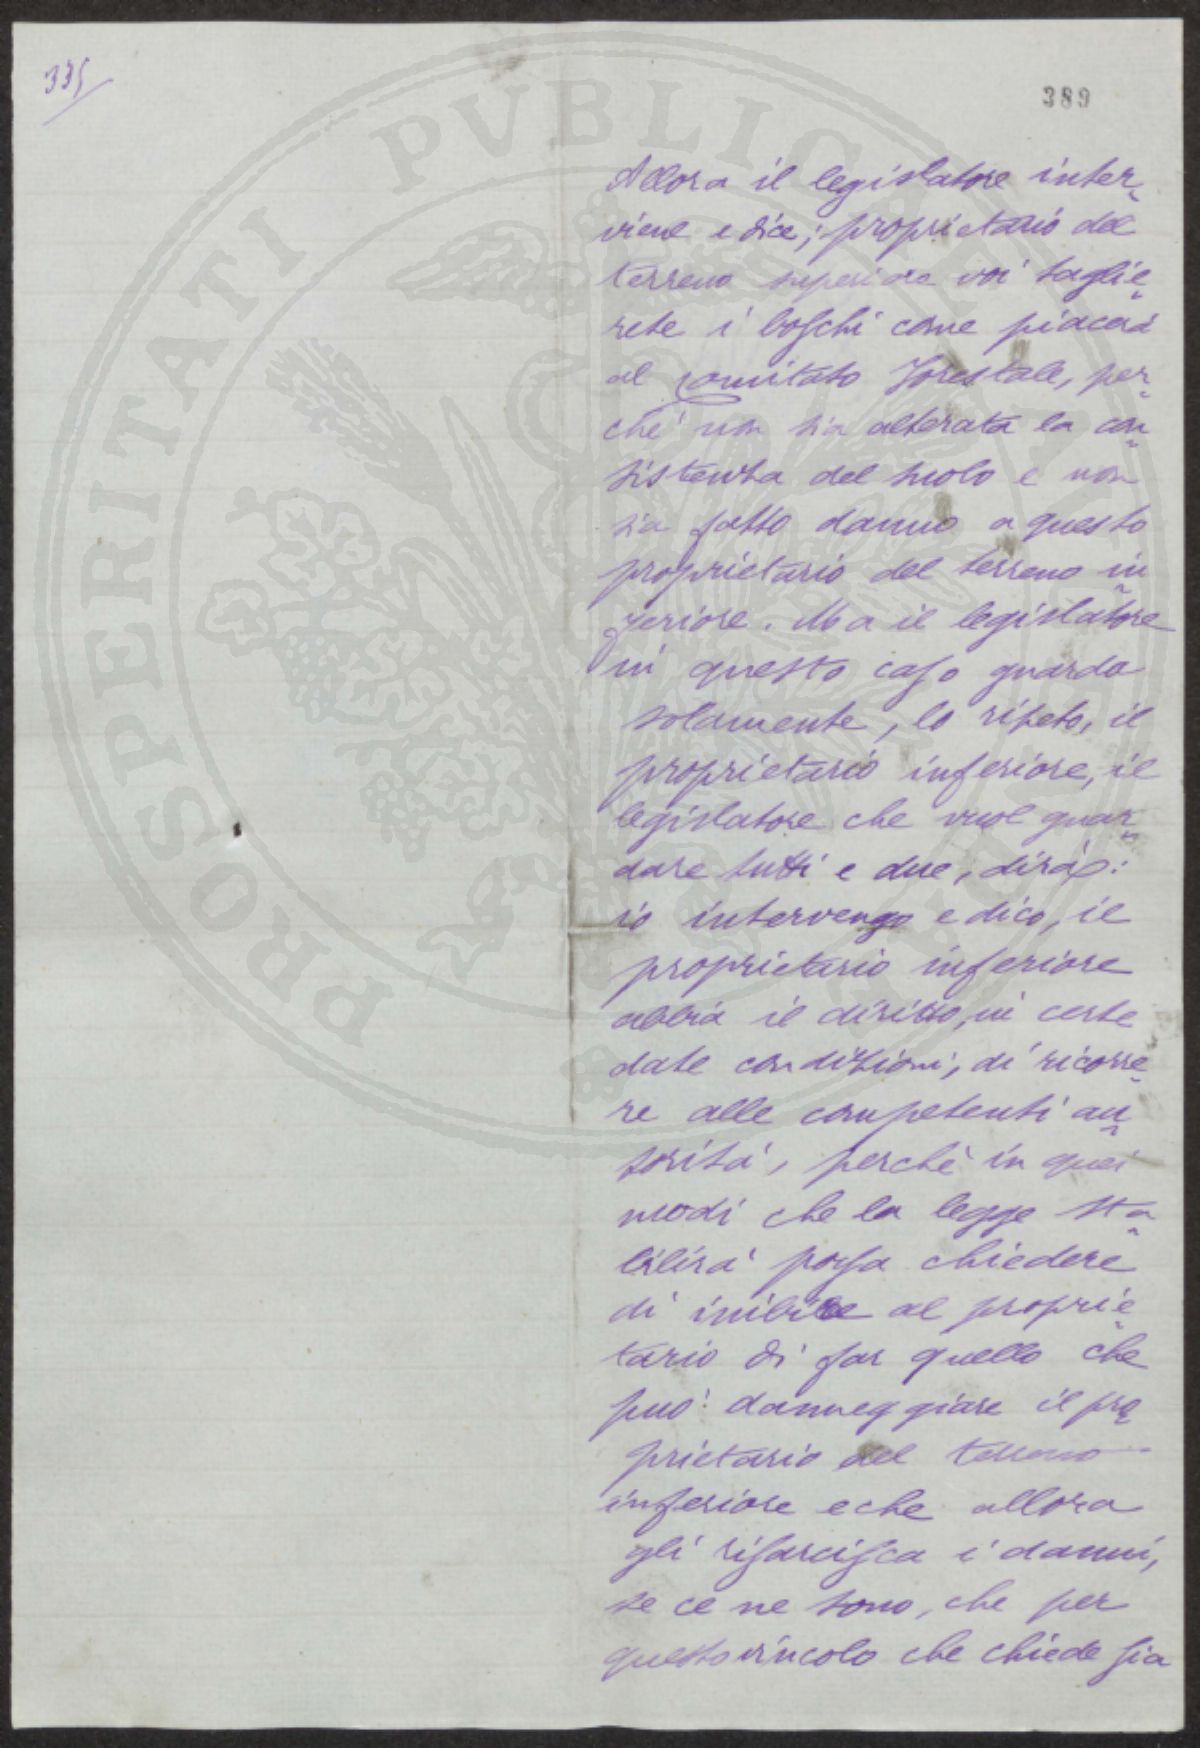 335
389
PROSPERITATI PVBLICAE
Allora il legislatore inter-
viene e dice; proprietario del
terreno superiore voi taglie-
rete i boschi come piacerà
al comitato forestale, per-
ché non sia alterata la con-
sistenza del suolo e non
sia fatto danno a questo
proprietario del terreno in-
feriore. Ma il legislatore
in questo caso guarda
solamente, lo ripeto, il
proprietario inferiore, il
legislatore che vuol guar-
dare tutti e due, dirà:
io intervengo e dico, il
proprietario inferiore
abbia il diritto, in certe
date condizioni, di ricorre-
re alle competenti au-
torità, perchè in quei
modi che la legge sta-
bilirà possa chiedere
di inibire al proprie-
tario di far quello che
può danneggiare il pro-
prietario del terreno
inferiore e che allora
gli risarcisca i danni,
se ce ne sono, che per
questo vincolo che chiede sia